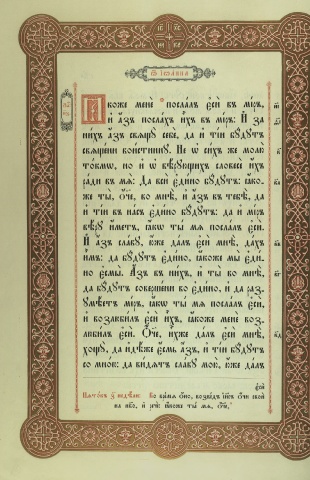 Ѿ іѡанна
Ꙗкоже менѐ послалъ є҆сѝ въ мі́ръ,
и҆ а҆́зъ посла́хъ и҆̀хъ въ мі́ръ: И҆ за
ни́хъ а҆́зъ свѧщꙋ̀ себѐ, да и҆ ті́и бꙋ́дꙋтъ
свѧще́ни вои́стинꙋ. Не ѡ҆ си́хъ же молю̀
то́кмѡ, но и҆ ѡ҆ вѣ́рꙋющихъ словесѐ и҆́хъ
ра́ди въ мѧ̀: Да всѝ є҆ди́но бꙋ́дꙋтъ: ꙗ҆́ко-
же ты̀, ѻ҆́ч҃е, во мнѣ̀, и҆ а҆́зъ въ тебѣ̀, да
и҆ ті́и въ на́съ є҆ди́но бꙋ́дꙋтъ: да и҆ мі́ръ
вѣ́рꙋ и҆́метъ, ꙗ҆́кѡ ты́ мѧ посла́лъ є҆сѝ.
И҆ а҆́зъ сла́вꙋ, ю҆́же да́лъ є҆сѝ мнѣ̀, да́хъ
и҆̀мъ: да бꙋ́дꙋтъ є҆ди́но, ꙗ҆́коже мы̀ є҆ди́-
но є҆смы̀. А҆́зъ въ ни́хъ, и҆ ты̀ во мнѣ̀,
да бꙋ́дꙋтъ соверше́ни во є҆ди́но, и҆ да раз-
ꙋмѣ́етъ мі́ръ, ꙗ҆́кѡ ты́ мѧ посла́лъ є҆сѝ,
и҆ возлюби́лъ є҆сѝ и҆̀хъ, ꙗ҆́коже менѐ воз-
люби́лъ є҆сѝ. Ѻ҆́ч҃е, и҆̀хже да́лъ є҆сѝ мнѣ̀,
хощꙋ̀, да и҆дѣ́же є҆́смь а҆́зъ, и҆ ті́и бꙋ́дꙋтъ
со мно́ю: да ви́дѧтъ сла́вꙋ мою̀, ю҆́же да́лъ
є҆сѝ
во вре́мѧ ѻ҆́но, возведѐ і҆и҃съ ѻ҆́чи своѝ
на не́бо, и҆ речѐ: